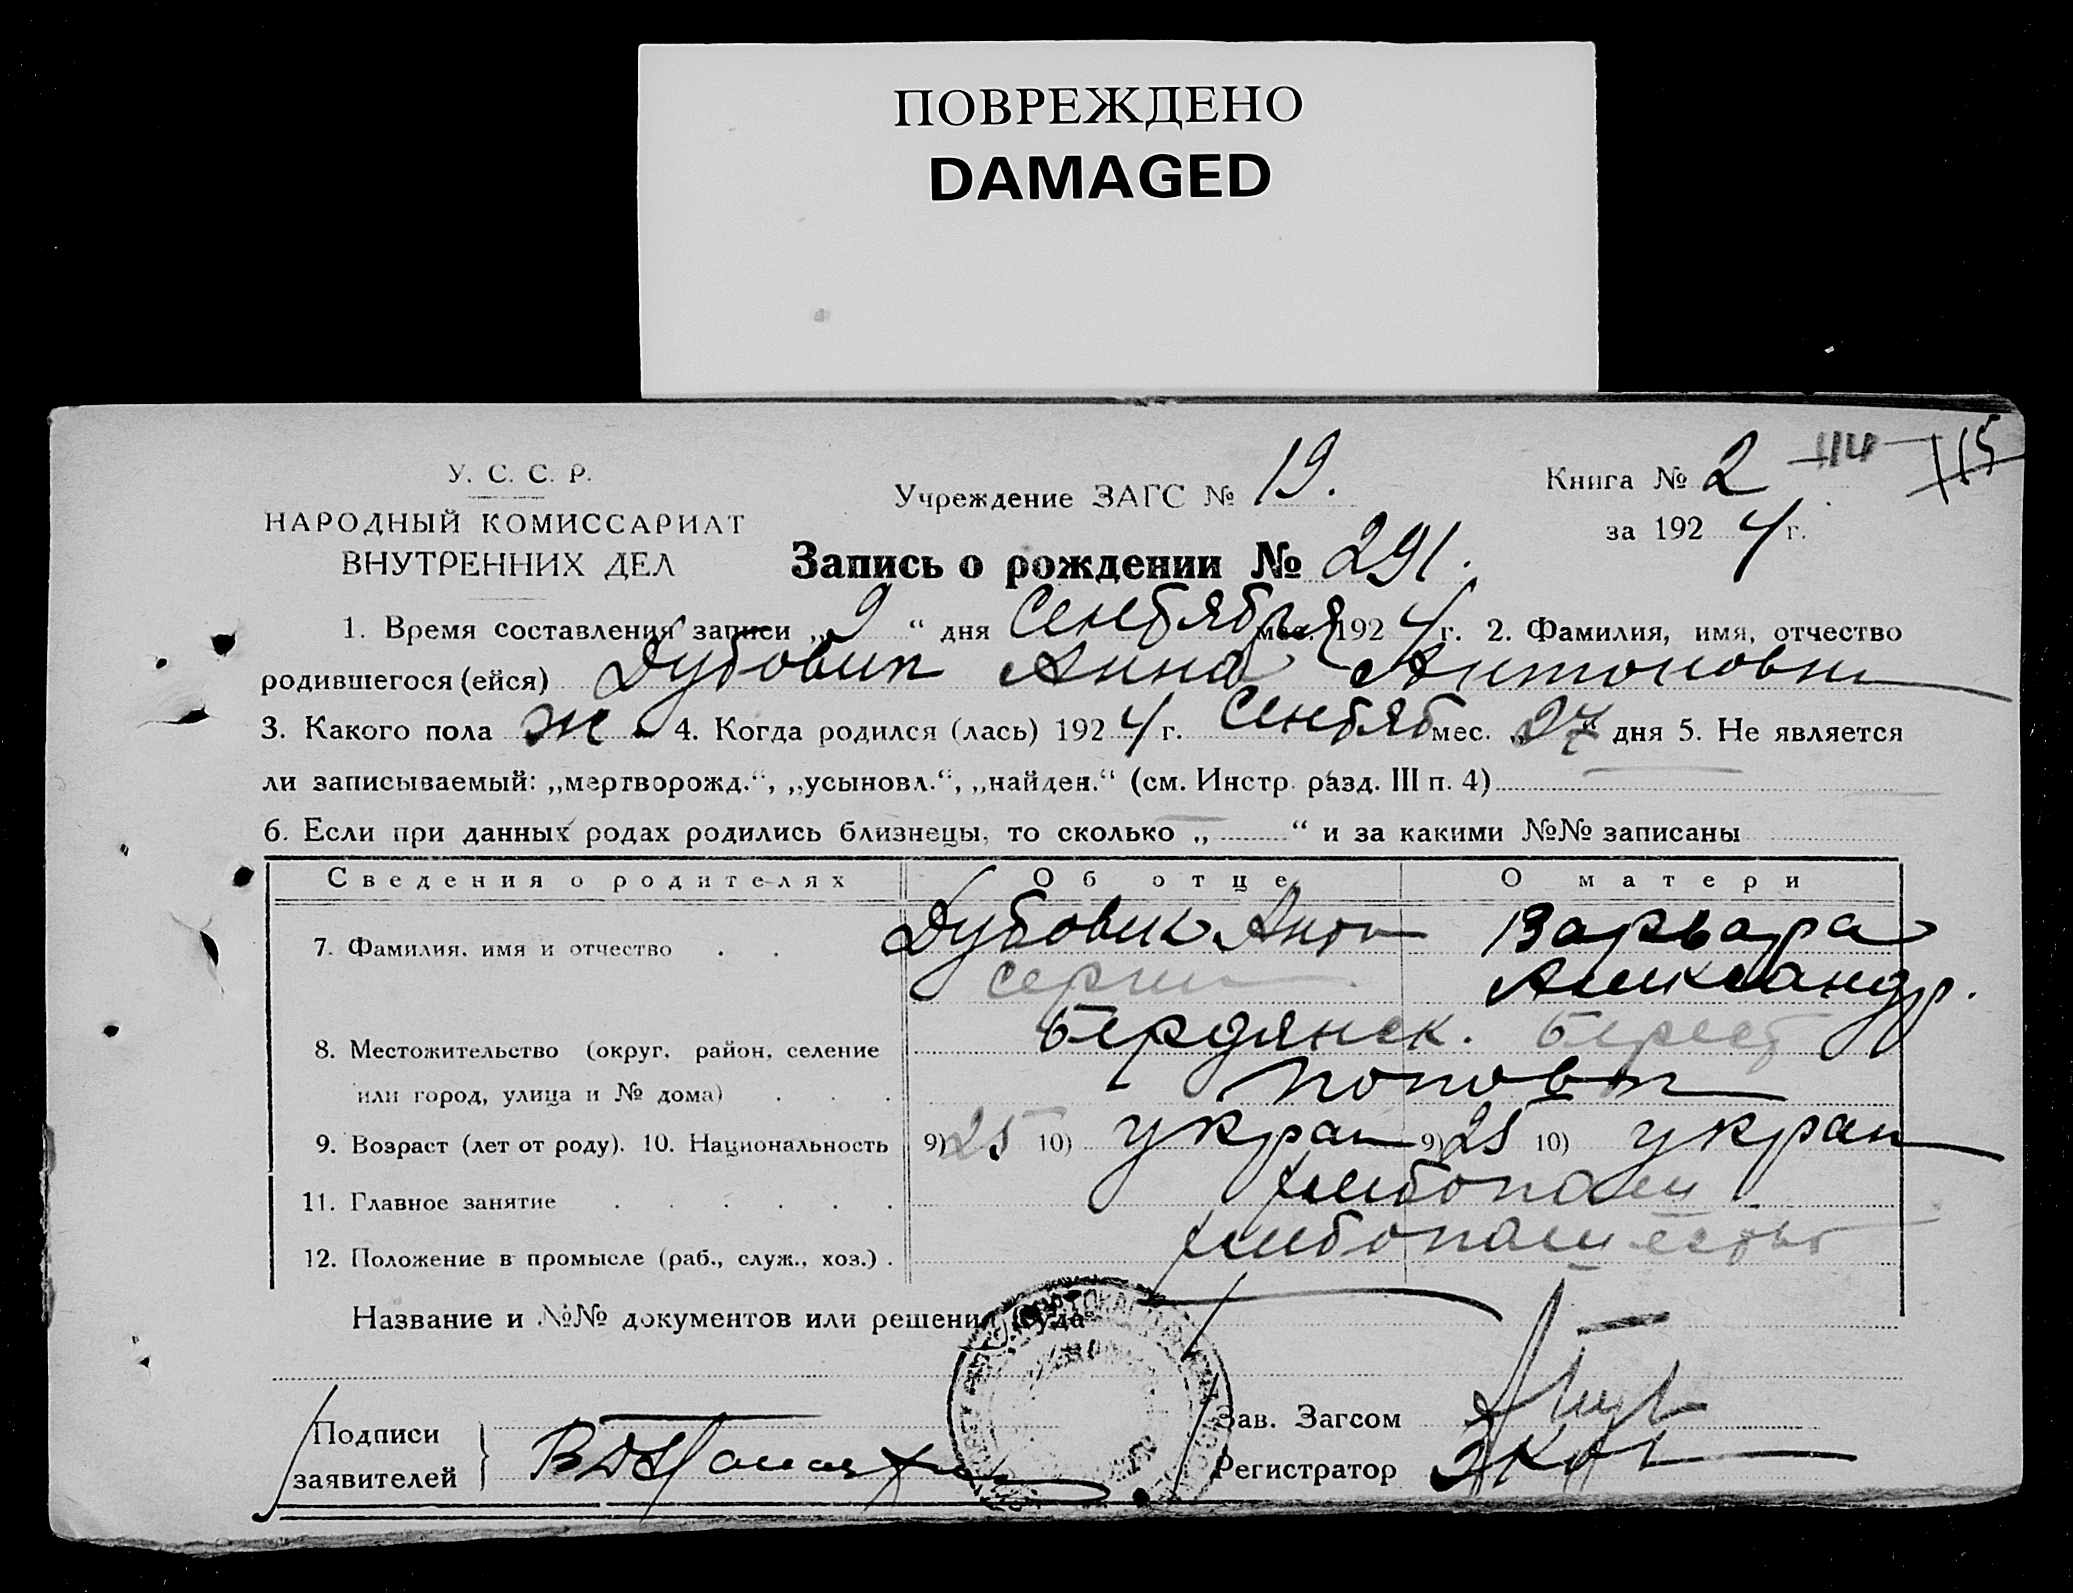 ПОВРЕЖДЕНО
DAMAGED
У. С. С. Р.
НАРОДНЫЙ КОМИССАРИАТ
ВНУТРЕННИХ ДЕЛ
Учреждение ЗАГС № 19.
Книга № 2 114 115
за 1924 г.
Запись о рождении № 291.
1. Время составления записи „2“ дня Сентября мес. 1924 г. 2. Фамилия, имя, отчество
родившегося (ейся) Дубовик Анна Антоновн
3. Какого пола ж 4. Когда родился (лась) 1924 г. Сентяб мес. „27“ дня 5. Не является
ли записываемый: „мертворожд.“, „усыновл.“, „найден.“ (см. Инстр. разд. III п. 4)
6. Если при данных родах родились близнецы, то сколько „ “ и за какими №№ записаны
Сведения о родителях Об отце О матери
7. Фамилия, имя и отчество Дубовик Антон Варвара
Серги Александр.
8. Местожительство (округ, район, селение Бердянск. Берест
или город, улица и № дома) Попов
9. Возраст (лет от роду). 10. Национальность 9) 25 10) укра 9) 25 10) украи
11. Главное занятие хлебопаш
12. Положение в промысле (раб., служ., хоз.) хлебопашество
Название и №№ документов или решения суда
Подписи
заявителей
Зав. Загсом
Регистратор